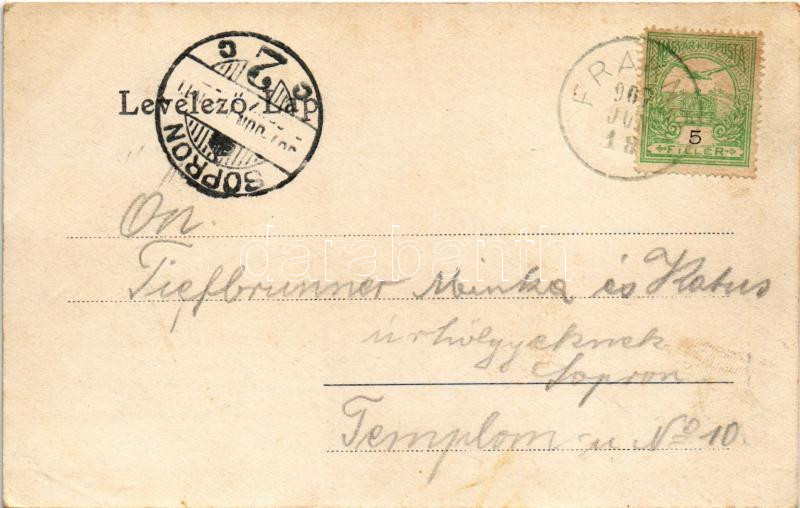 Levelező-Lap
SOPRON
C 2 C
FRA
907
JUN
18
MAGYAR KIR. POSTA
5
FILLÉR
darabanth
Tiefbrunner Minka és Katus
úrhölgyeknek
Sopron
Templom-u No 10.